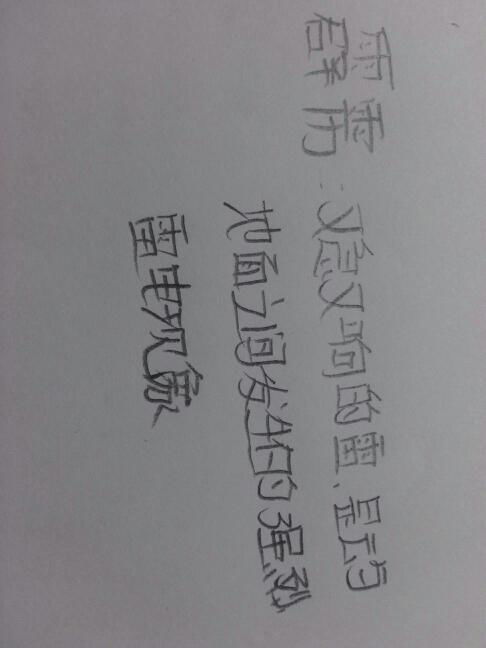 霹雳:又急又响的雷、是云与
地面之间发生的强烈
雷电现象